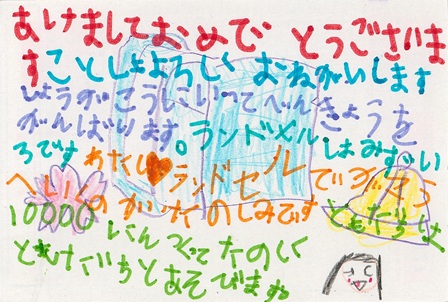 あけましておめで とうございま
すことしもよろしく おねがいします
しょうがこうにいってべんきょうを
がんばります。ランドメルしはみずい
ろです わたし ランドセル で
の たのしみです ともだちは
10000にんつくってたのしく
ともだちとあそびます